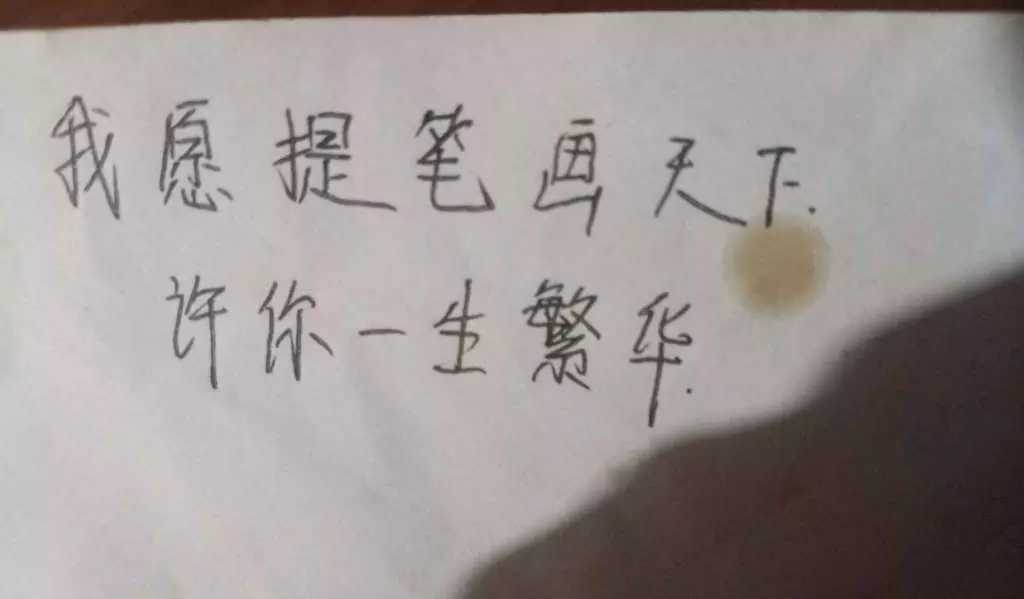 我愿提笔画天下.
许你一生繁华.